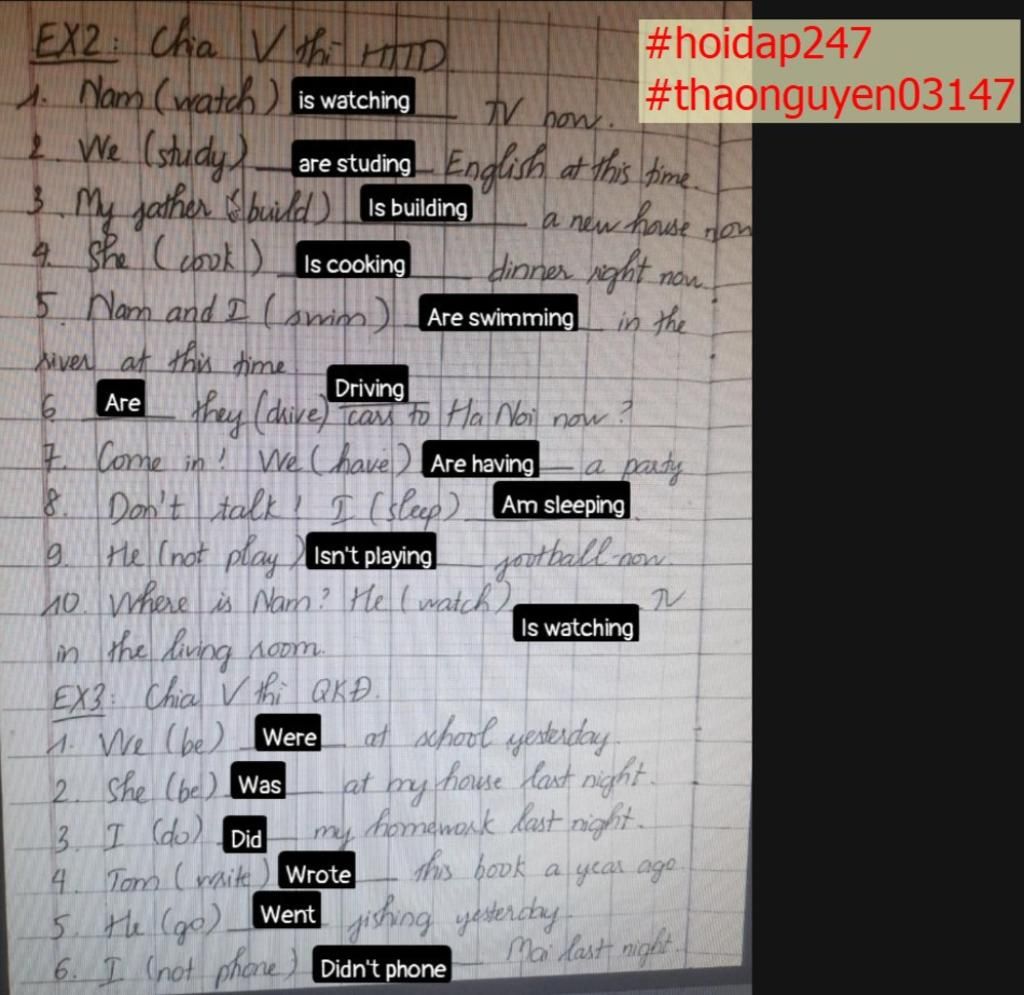 #hoidap247
#thaonguyen03147
EX2: Chia V thì HTTD
1. Nam (watch) is watching TV now.
2. We (study) are studing English at this time.
3. My father (build) Is building a new house now
4. She (cook) Is cooking dinner right now.
5. Nam and I (swim) Are swimming in the
river at this time
6. Are they (drive) Driving cars to Ha Noi now?
7. Come in! We (have) Are having a party
8. Don't talk! I (sleep) Am sleeping
9. He (not play) Isn't playing football now.
10. Where is Nam? He (watch) Is watching TV
in the living room.
EX3: Chia V thì QKĐ.
1. We (be) Were at school yesterday.
2. She (be) Was at my house last night.
3. I (do) Did my homework last night.
4. Tom (write) Wrote this book a year ago
5. He (go) Went fishing yesterday.
6. I (not phone) Didn't phone Mai last night.